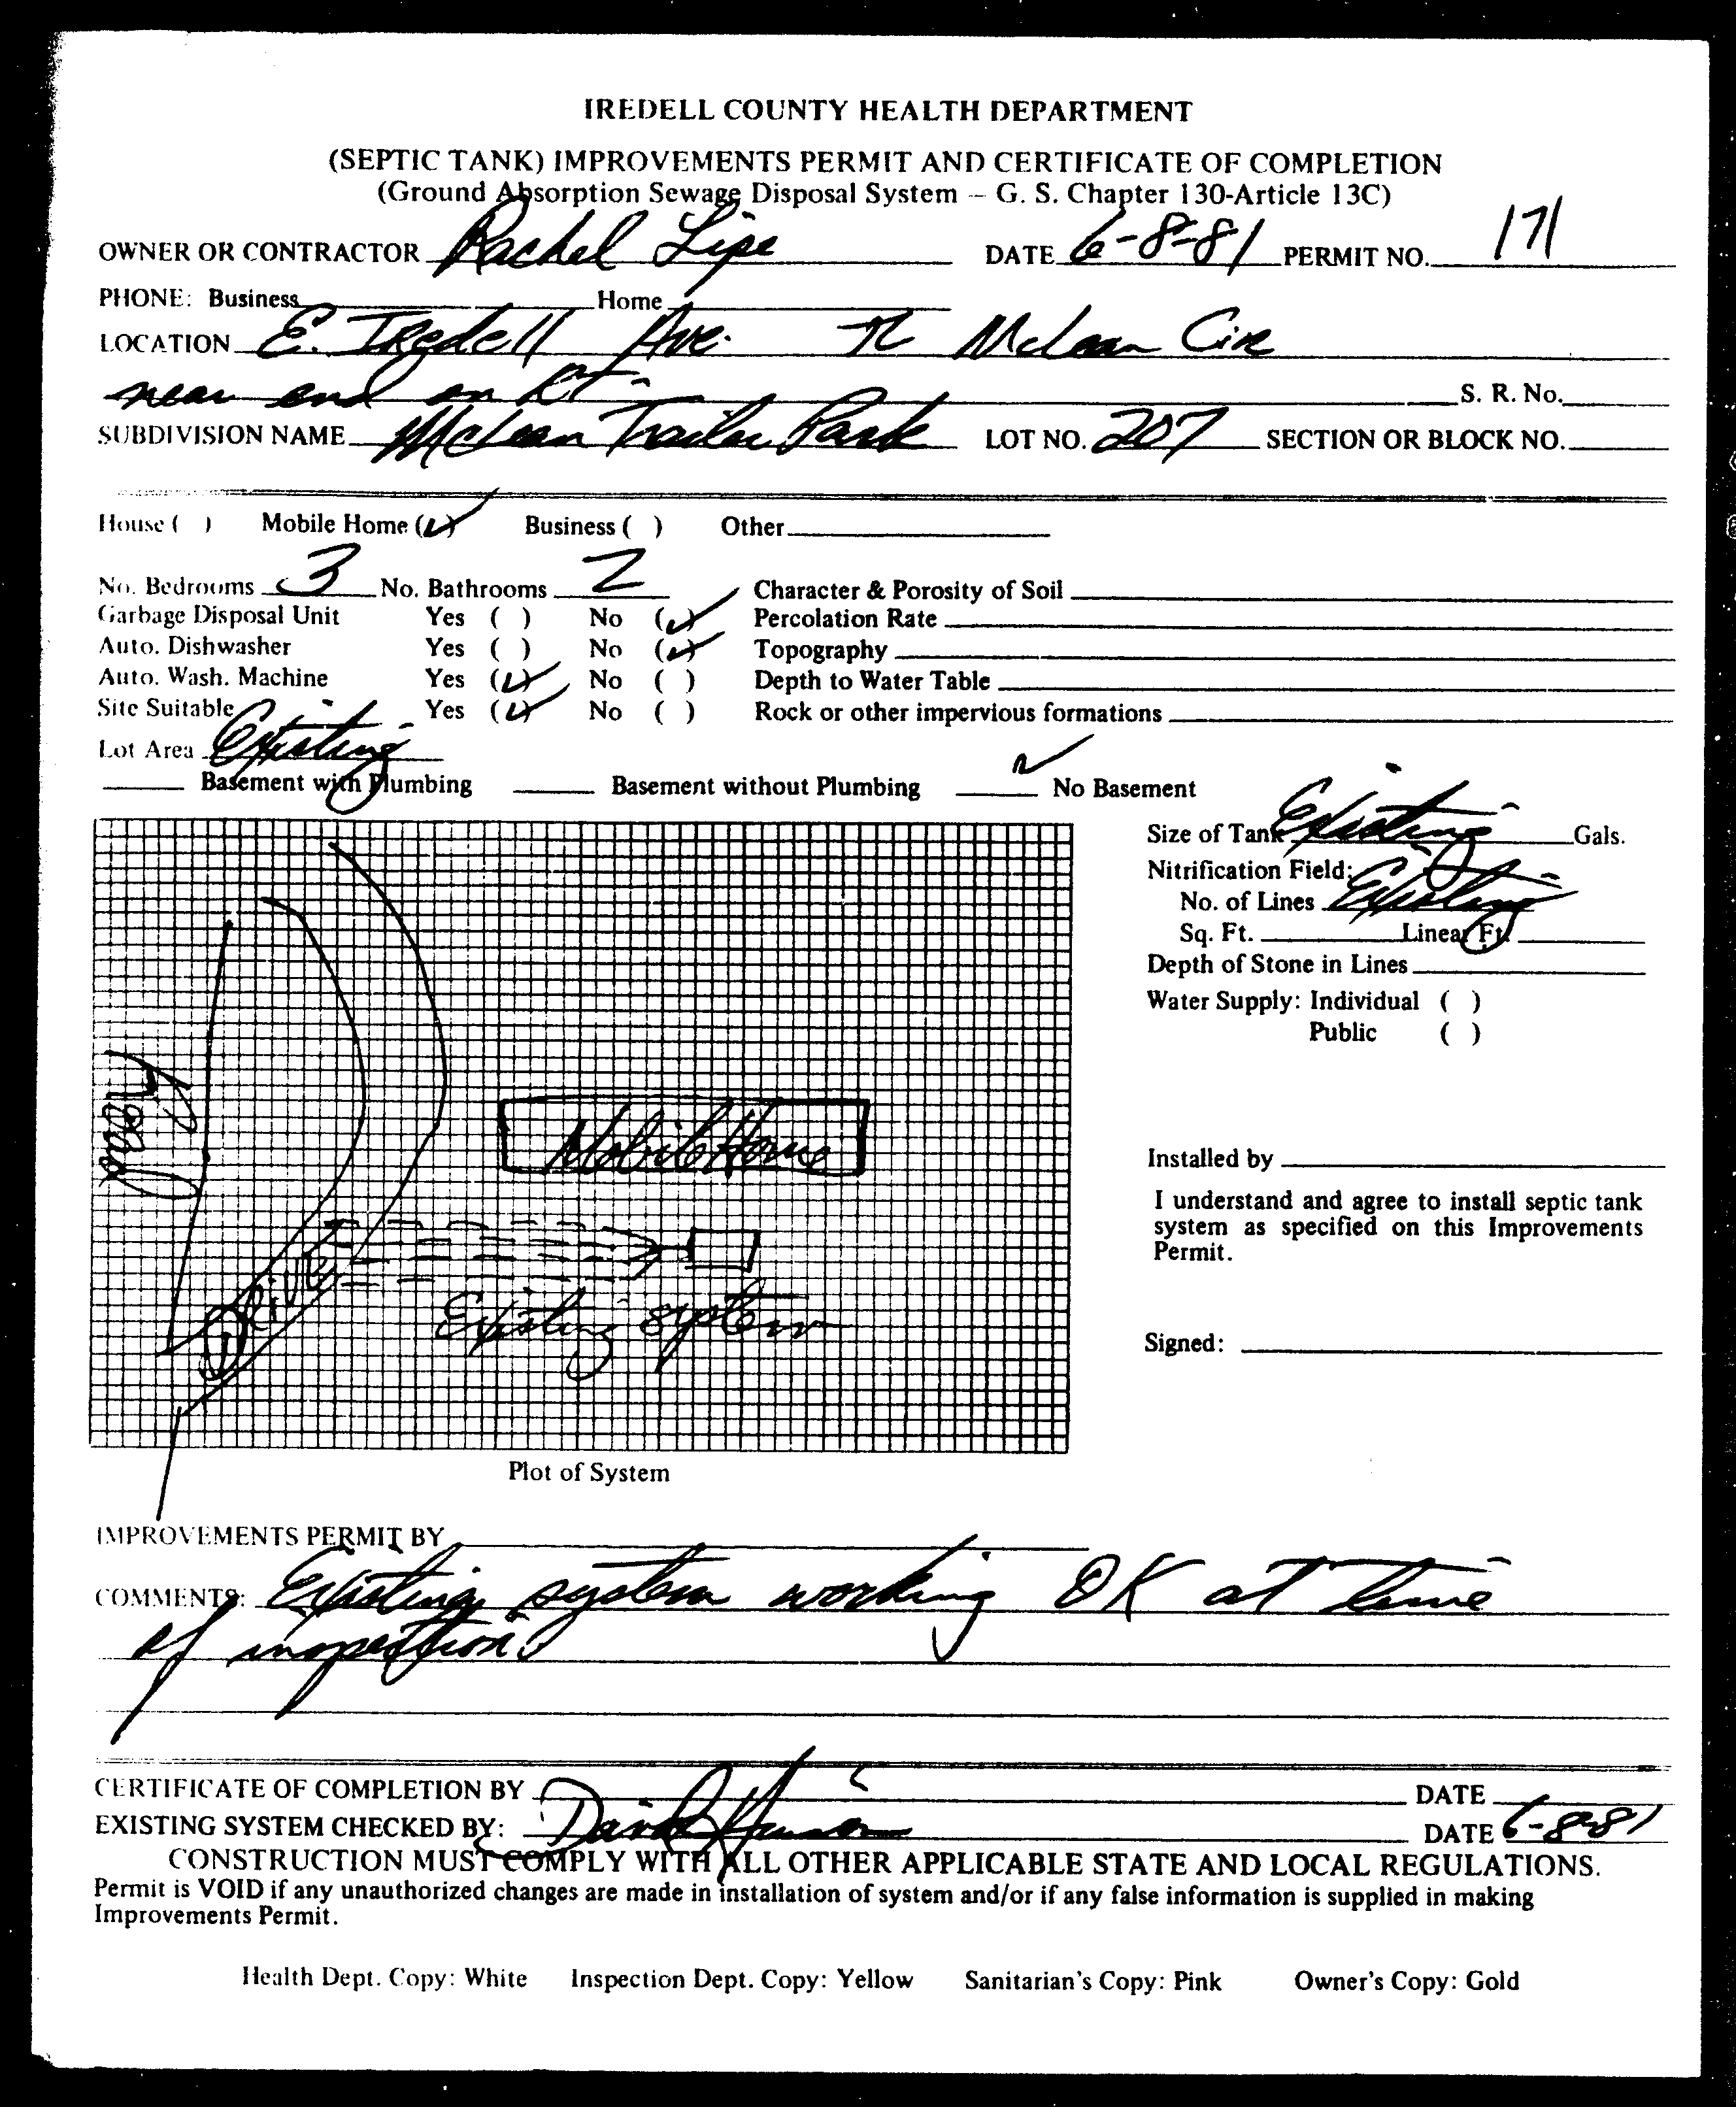 IREDELL COUNTY HEALTH DEPARTMENT
(SEPTIC TANK) IMPROVEMENTS PERMIT AND CERTIFICATE OF COMPLETION
(Ground Absorption Sewage Disposal System – G. S. Chapter 130-Article 13C)
OWNER OR CONTRACTOR Rachel Lipe DATE 6-8-81 PERMIT NO. 171
PHONE: Business Home
LOCATION E. Iredell Ave. McLean Cire
near end on Rt
S. R. No.
SUBDIVISION NAME McLean Trailer Park LOT NO. 207 SECTION OR BLOCK NO.
House ( ) Mobile Home (✓) Business ( ) Other
No. Bedrooms 3 No. Bathrooms 2 Character & Porosity of Soil
Garbage Disposal Unit Yes ( ) No (✓) Percolation Rate
Auto. Dishwasher Yes ( ) No (✓) Topography
Auto. Wash. Machine Yes (✓) No ( ) Depth to Water Table
Site Suitable Yes (✓) No ( ) Rock or other impervious formations
Lot Area Existing
Basement with Plumbing Basement without Plumbing ✓ No Basement
Size of Tank Existing Gals.
Nitrification Field:
No. of Lines Existing
Sq. Ft. Linear Ft.
Depth of Stone in Lines
Water Supply: Individual ( )
Public ( )
Road
Mobile Home
Drive
Existing system
Installed by
I understand and agree to install septic tank
system as specified on this Improvements
Permit.
Signed:
Plot of System
IMPROVEMENTS PERMIT BY
COMMENTS: Existing system working OK at time
of inspection.
CERTIFICATE OF COMPLETION BY DATE
EXISTING SYSTEM CHECKED BY: David DATE 6-8-81
CONSTRUCTION MUST COMPLY WITH ALL OTHER APPLICABLE STATE AND LOCAL REGULATIONS.
Permit is VOID if any unauthorized changes are made in installation of system and/or if any false information is supplied in making
Improvements Permit.
Health Dept. Copy: White Inspection Dept. Copy: Yellow Sanitarian's Copy: Pink Owner's Copy: Gold